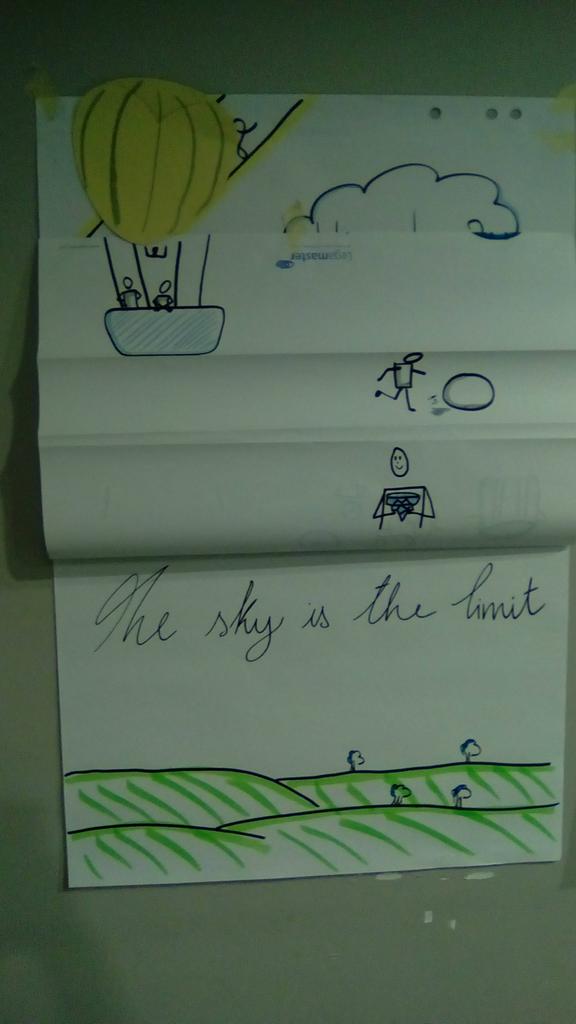 Legamaster
The sky is the limit